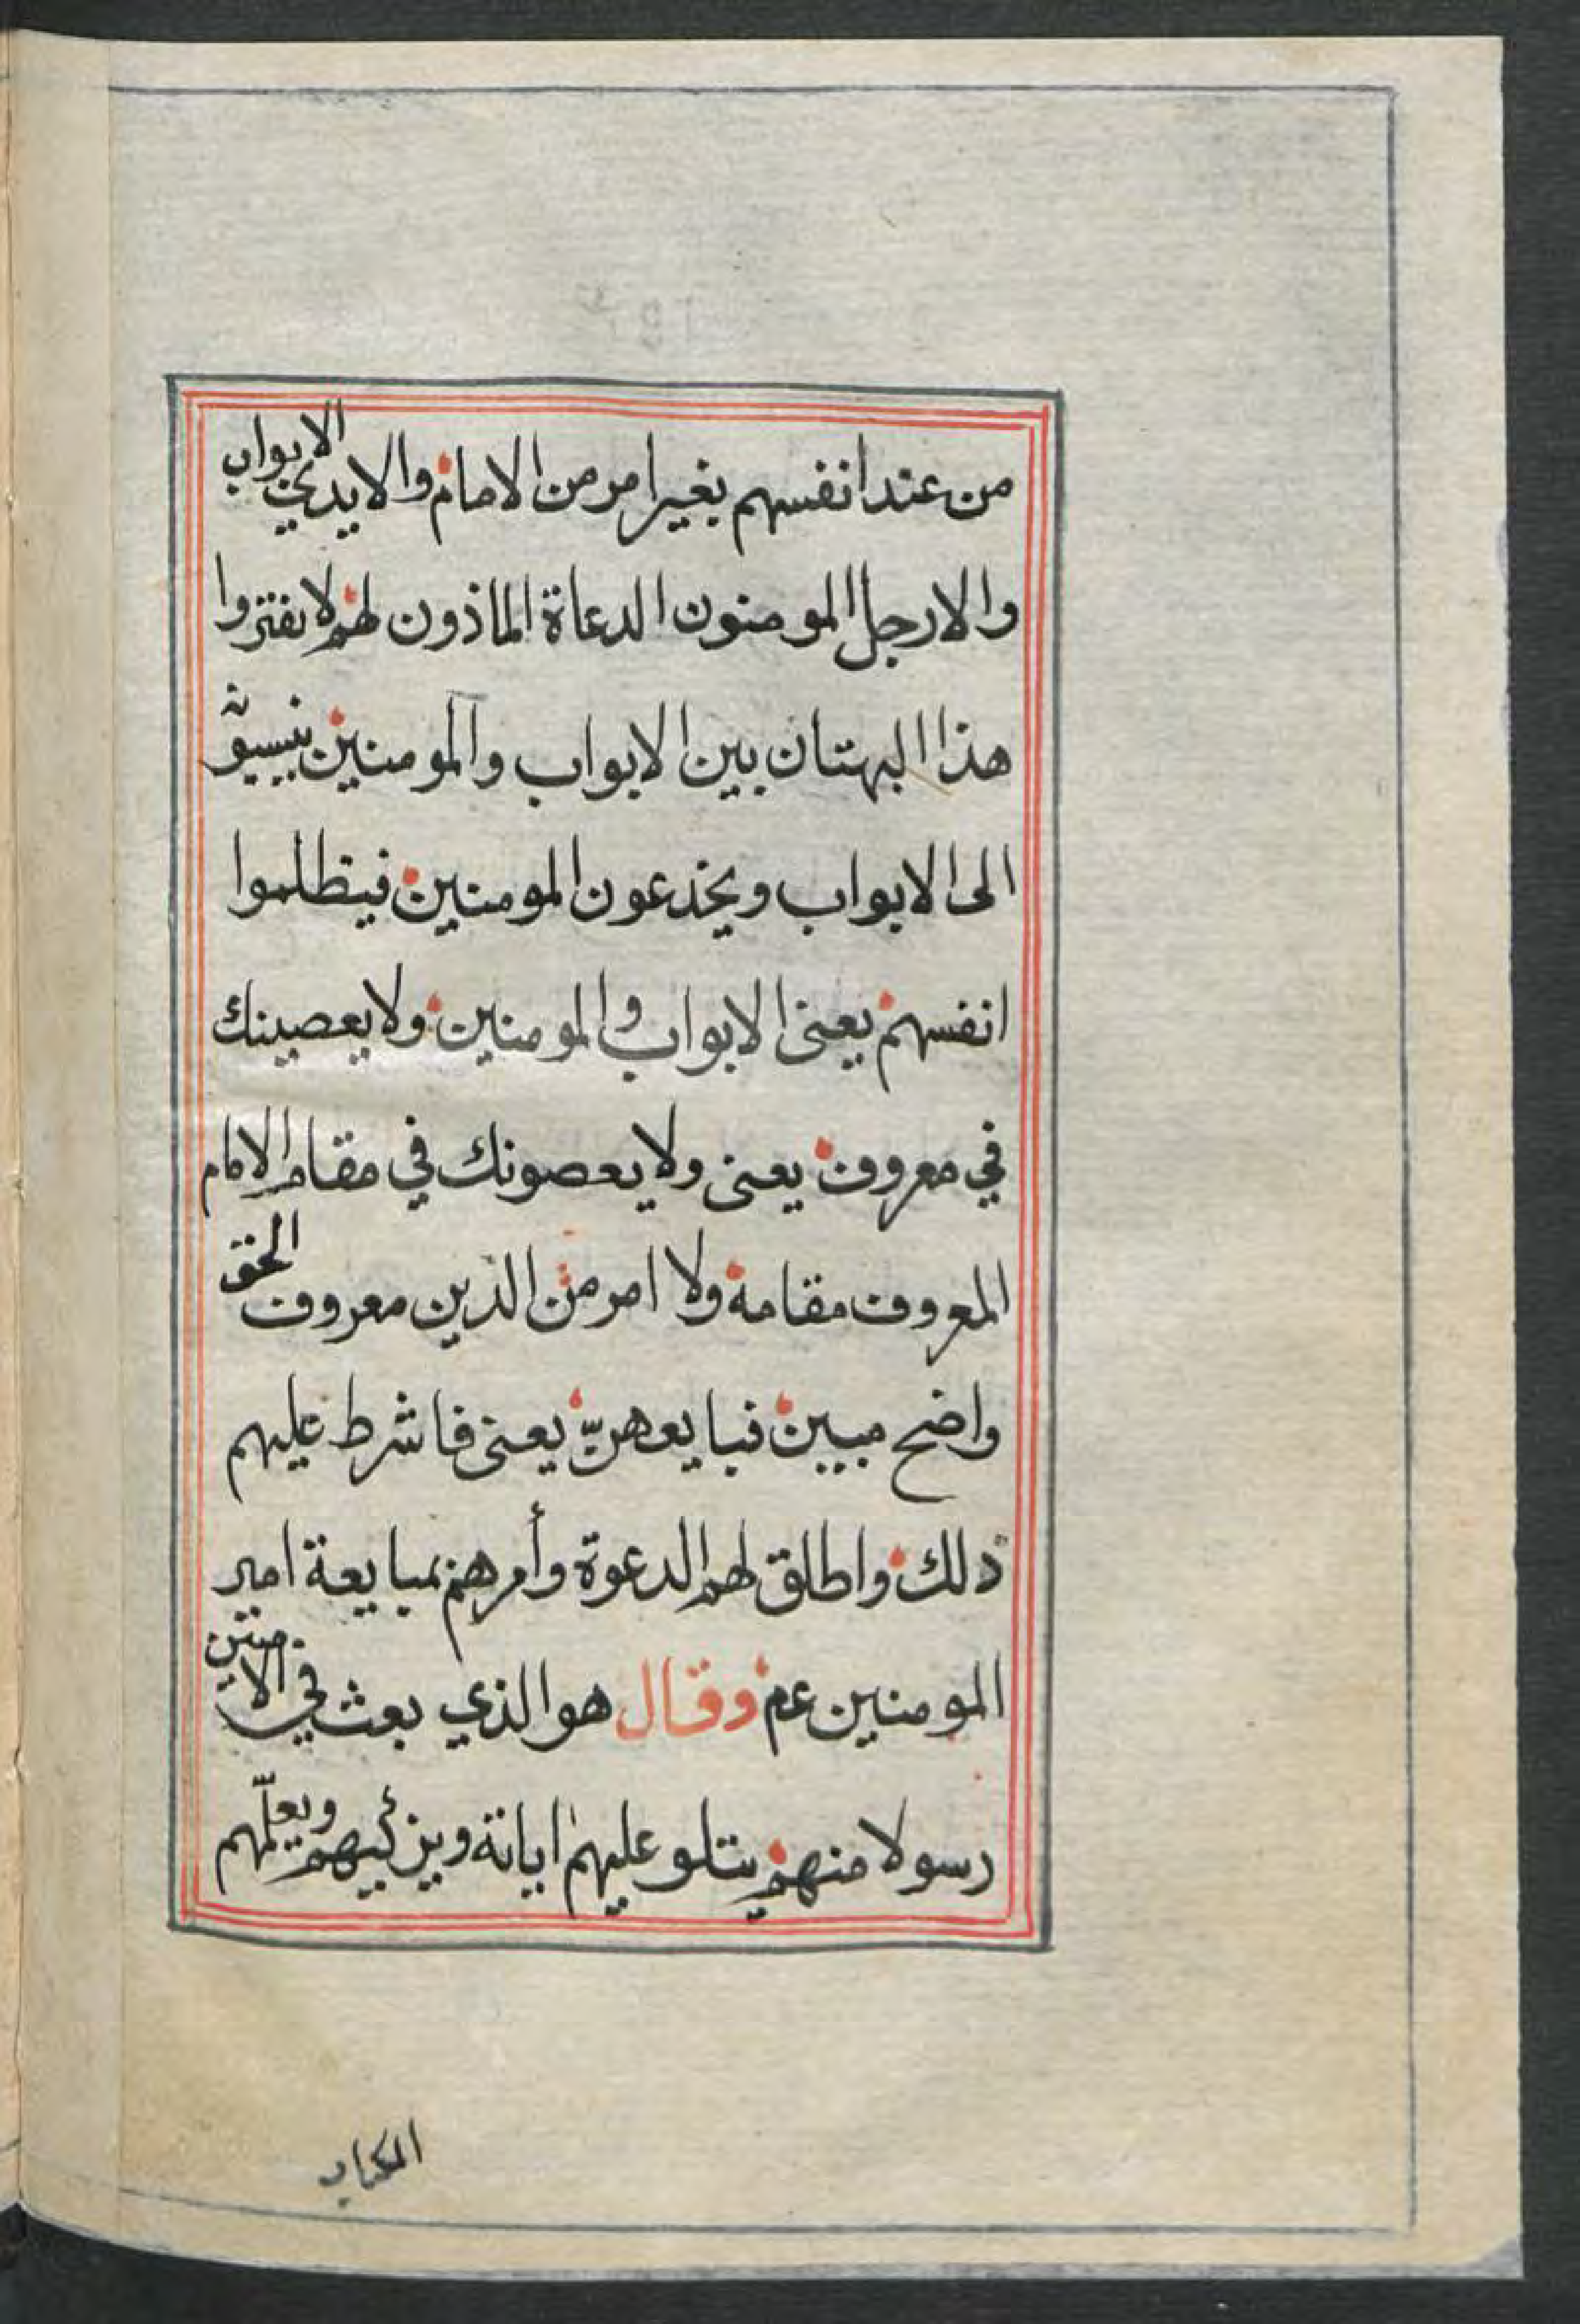 من عند انفسهم بغير امر من الامام والايدي الابواب
والارجل المومنون الدعاة الماذون لهم لا يفتروا
هذا البهتان بين الابواب والمومنين
الى الابواب ويخدعون المومنين فيتظلموا
انفسهم يعنى الابواب والمومنين ولا يعصينك
في معروف يعنى ولا يعصونك في مقام الامام
المعروف مقامه ولا امر من الذين معروف الحق
واضح مبين فبايعهنّ يعنى فاشرط عليهم
ذلك واطلق لهم الدعوة وأمرهم بمبايعة امير
المومنين عم وقال هو الذي بعث في الاميّن
رسولا منهم يتلو عليهم اياته ويزكيهم ويعلّمهم
الكتاب